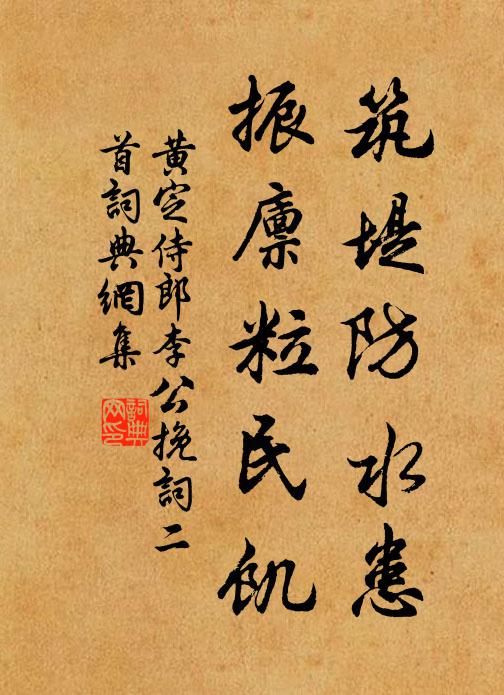 筑堤防水患
振廪粒民飢
黄定侍郎李公挽詞二
首詞典網集
詞典
网印